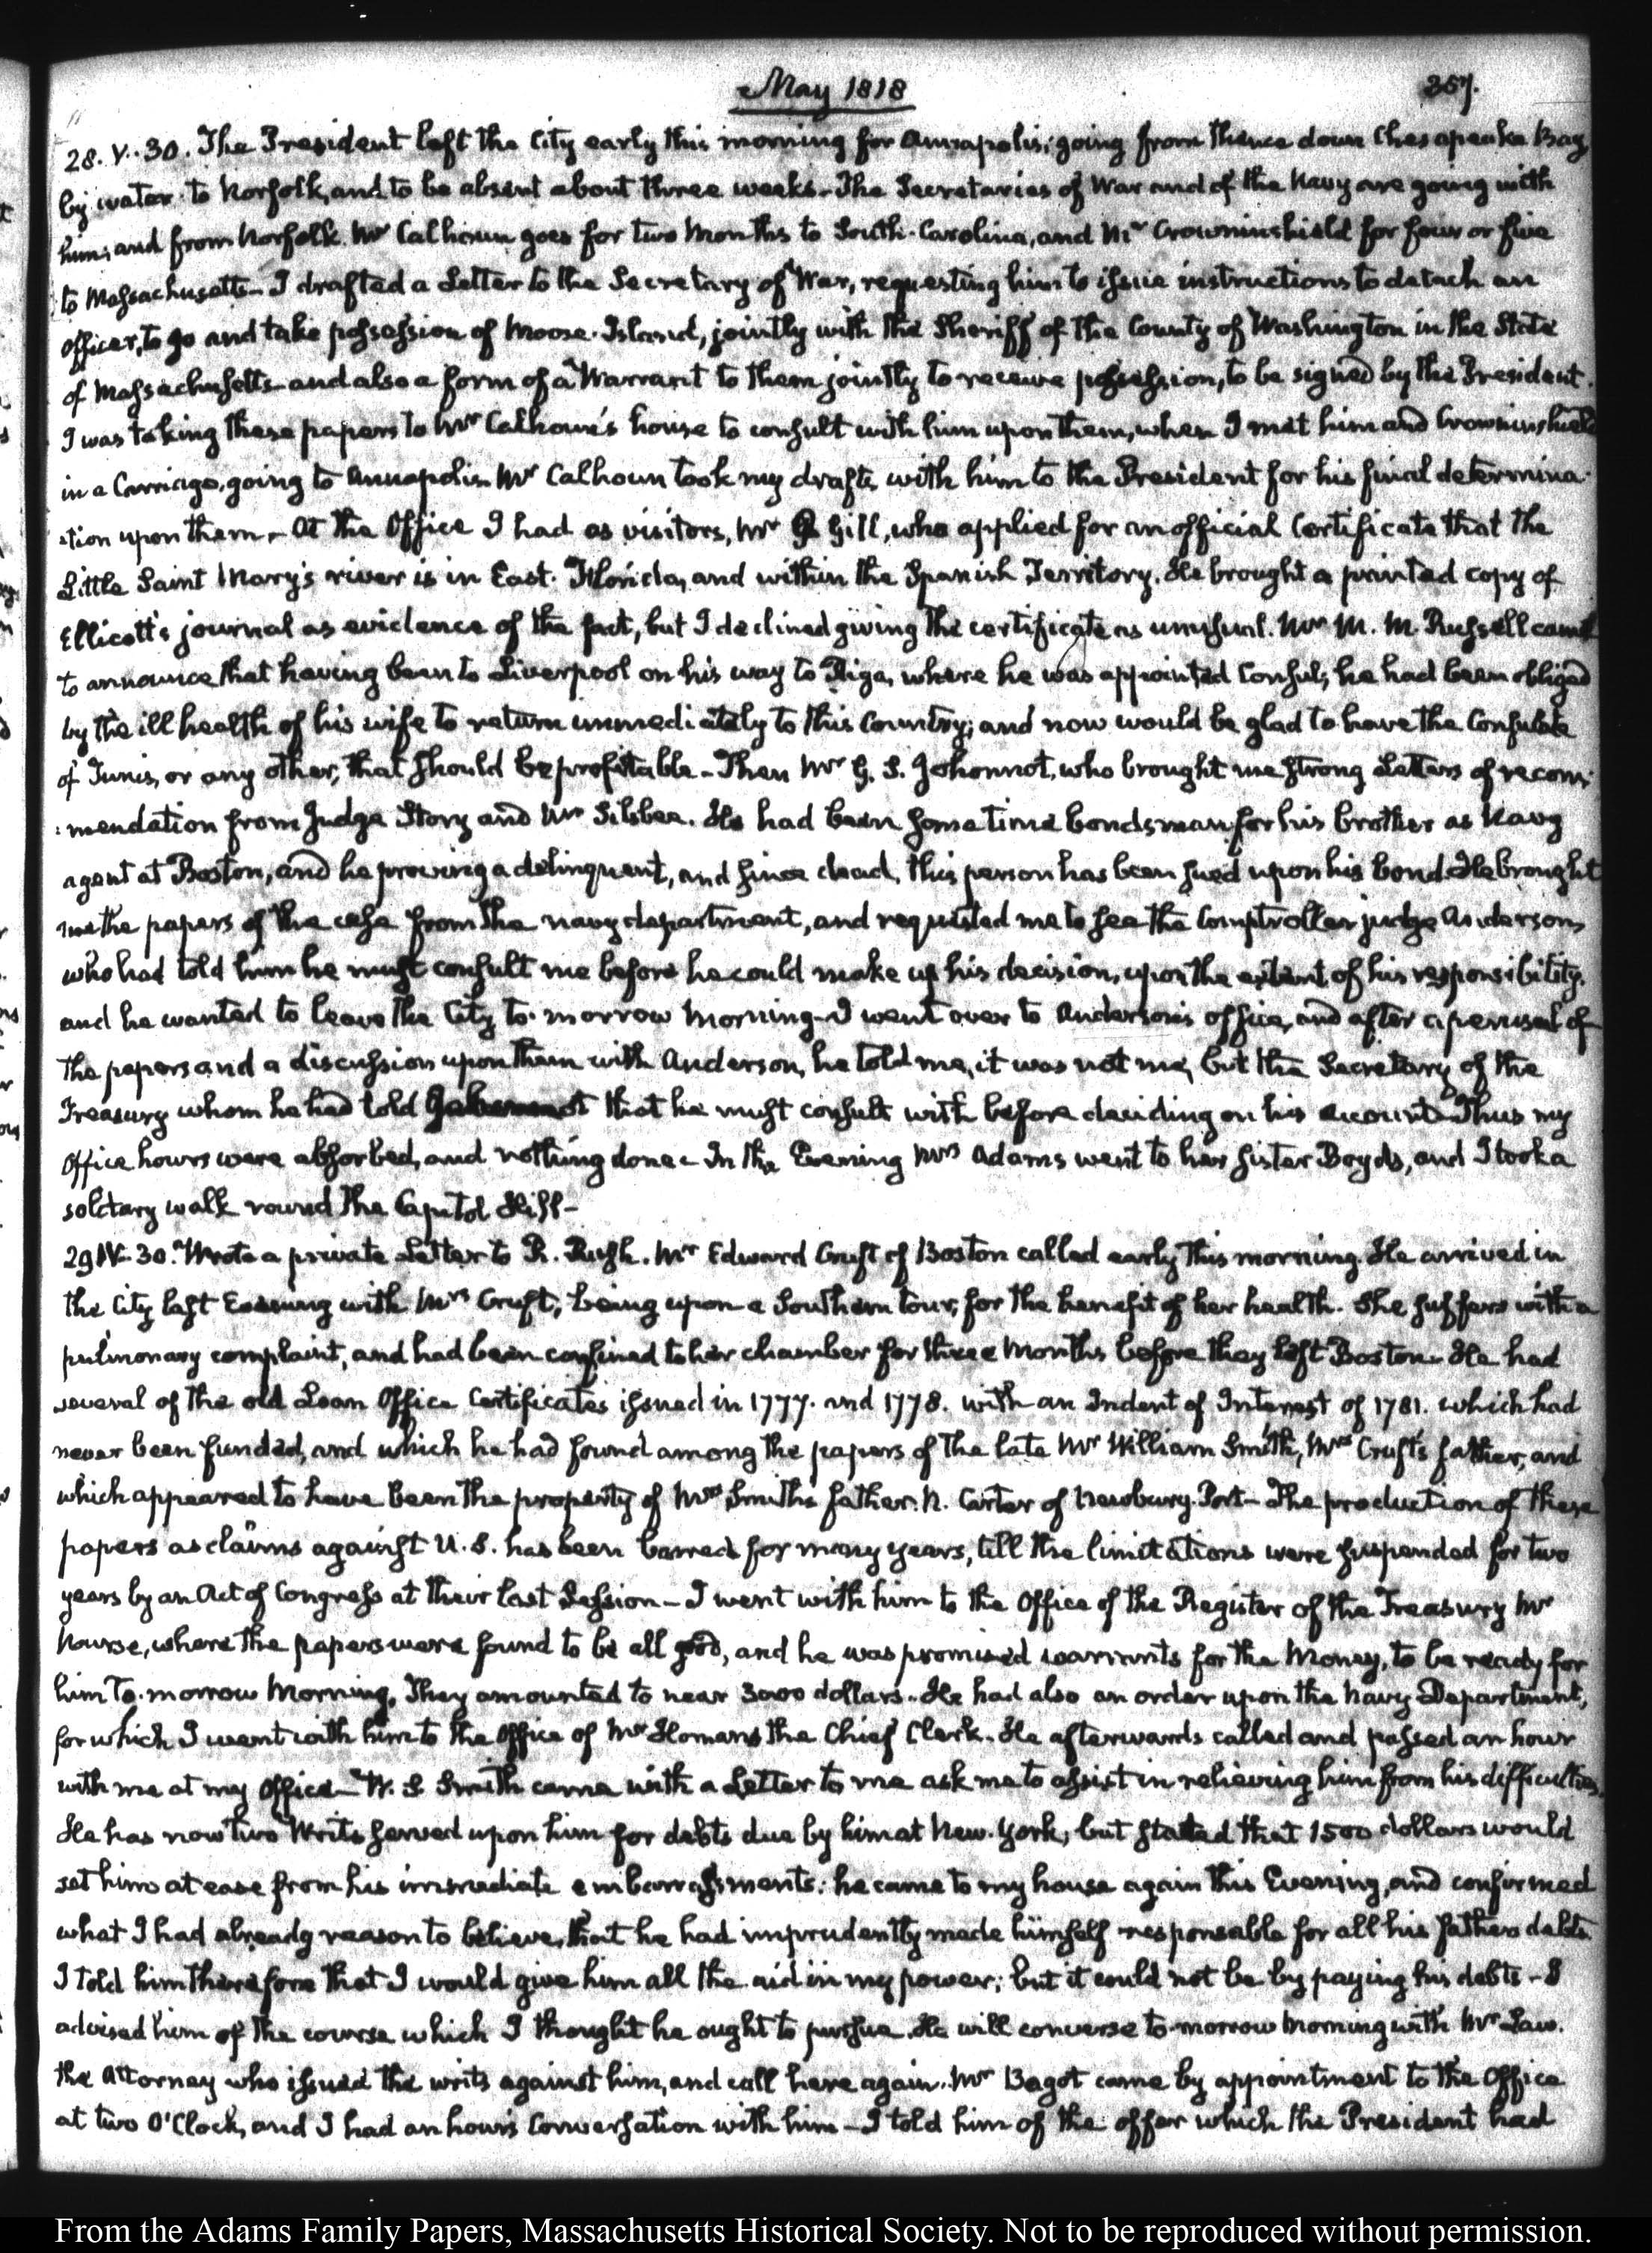 May 1818
357.
28. V. 30. The President left the City early this morning for Annapolis; going from thence down Chesapeake Bay
by water to Norfolk, and to be absent about three weeks. The Secretaries of War and of the Navy are going with
him; and from Norfolk Mr Calhoun goes for two Months to South-Carolina, and Mr Crowninshield for four or five
to Massachusetts— I drafted a Letter to the Secretary of War, requesting him to issue instructions to detach an
officer, to go and take possession of Moose-Island, jointly with the Sheriff of the County of Washington in the State
of Massachusetts—and also a form of a Warrant to them jointly to receive possession, to be signed by the President.
I was taking these papers to Mr Calhoun's house to consult with him upon them, when I met him and Crowninshield
in a Carriage, going to Annapolis. Mr Calhoun took my drafts with him to the President for his final determina-
-tion upon them.— At the Office I had as visitors, Mr Gill, who applied for an official Certificate that the
Little Saint Mary's river is in East-Florida, and within the Spanish Territory. He brought a printed copy of
Ellicott's journal as evidence of the fact, but I declined giving the certificate as unusual. Mr M. M. Russell came
to announce that having been to Liverpool on his way to Riga, where he was appointed Consul; he had been obliged
by the ill health of his wife to return immediately to this Country; and now would be glad to have the Consulate
of Tunis, or any other, that should be profitable— Then Mr G. S. Johonnot, who brought me strong Letters of recom:
:mendation from Judge Story and Mr Silsbee. He had been sometime bondsman for his brother as Navy
agent at Boston, and he proving a delinquent, and since dead, this person has been sued upon his bond. He brought
me the papers of the case from the navy department, and requested me to see the Comptroller judge Anderson,
who had told him he must consult me before he could make up his decision, upon the extent of his responsibility.
and he wanted to leave the City to-morrow Morning—I went over to Anderson's office, and after a perusal of
the papers and a discussion upon them with Anderson, he told me, it was not me, but the Secretary of the
Treasury whom he had told Johonnot that he must consult with before deciding on his account—Thus my
Office hours were absorbed, and nothing done— In the Evening Mrs Adams went to her Sister Boyds, and I took a
solitary walk round the Capitol Hill—
29. IV. 30. Wrote a private Letter to R. Rush. Mr Edward Cruft of Boston called early this morning. He arrived in
the City last Evening with Mrs Cruft; being upon a Southern tour, for the benefit of her health. She suffers with a
pulmonary complaint, and had been confined to her chamber for three Months before they left Boston. He had
several of the old Loan Office Certificates issued in 1777. and 1778. with an Indent of Interest of 1781. which had
never been funded, and which he had found among the papers of the late Mr William Smith, Mrs Cruft's father, and
which appeared to have been the property of Mrs Smith's father. N. Carter of Newbury-Port— The production of these
papers as claims against U.S. has been barred for many years, till the limitations were suspended for two
years by an Act of Congress at their last Session— I went with him to the Office of the Register of the Treasury Mr
Nourse, where the papers were found to be all good, and he was promised warrants for the Money, to be ready for
him to-morrow Morning. They amounted to near 3000 dollars. He had also an order upon the Navy Department,
for which I went with him to the Office of Mr Homans the Chief Clerk. He afterwards called and passed an hour
with me at my Office— W. S Smith came with a Letter to me ask me to assist in relieving him from his difficulties.
He has now two Writs served upon him for debts due by him at New-York; but stated that 1500 dollars would
set him at ease from his immediate embarrassments: he came to my house again this Evening, and confirmed
what I had already reason to believe, that he had imprudently made himself responsable for all his fathers debts.
I told him therefore that I would give him all the aid in my power; but it could not be by paying his debts— I
advised him of the course which I thought he ought to pursue. He will converse to-morrow Morning with Mr Law.
the Attorney who issued the writs against him, and call here again. Mr Bagot came by appointment to the Office
at two O'Clock, and I had an hour's Conversation with him— I told him of the offer which the President had
From the Adams Family Papers, Massachusetts Historical Society. Not to be reproduced without permission.